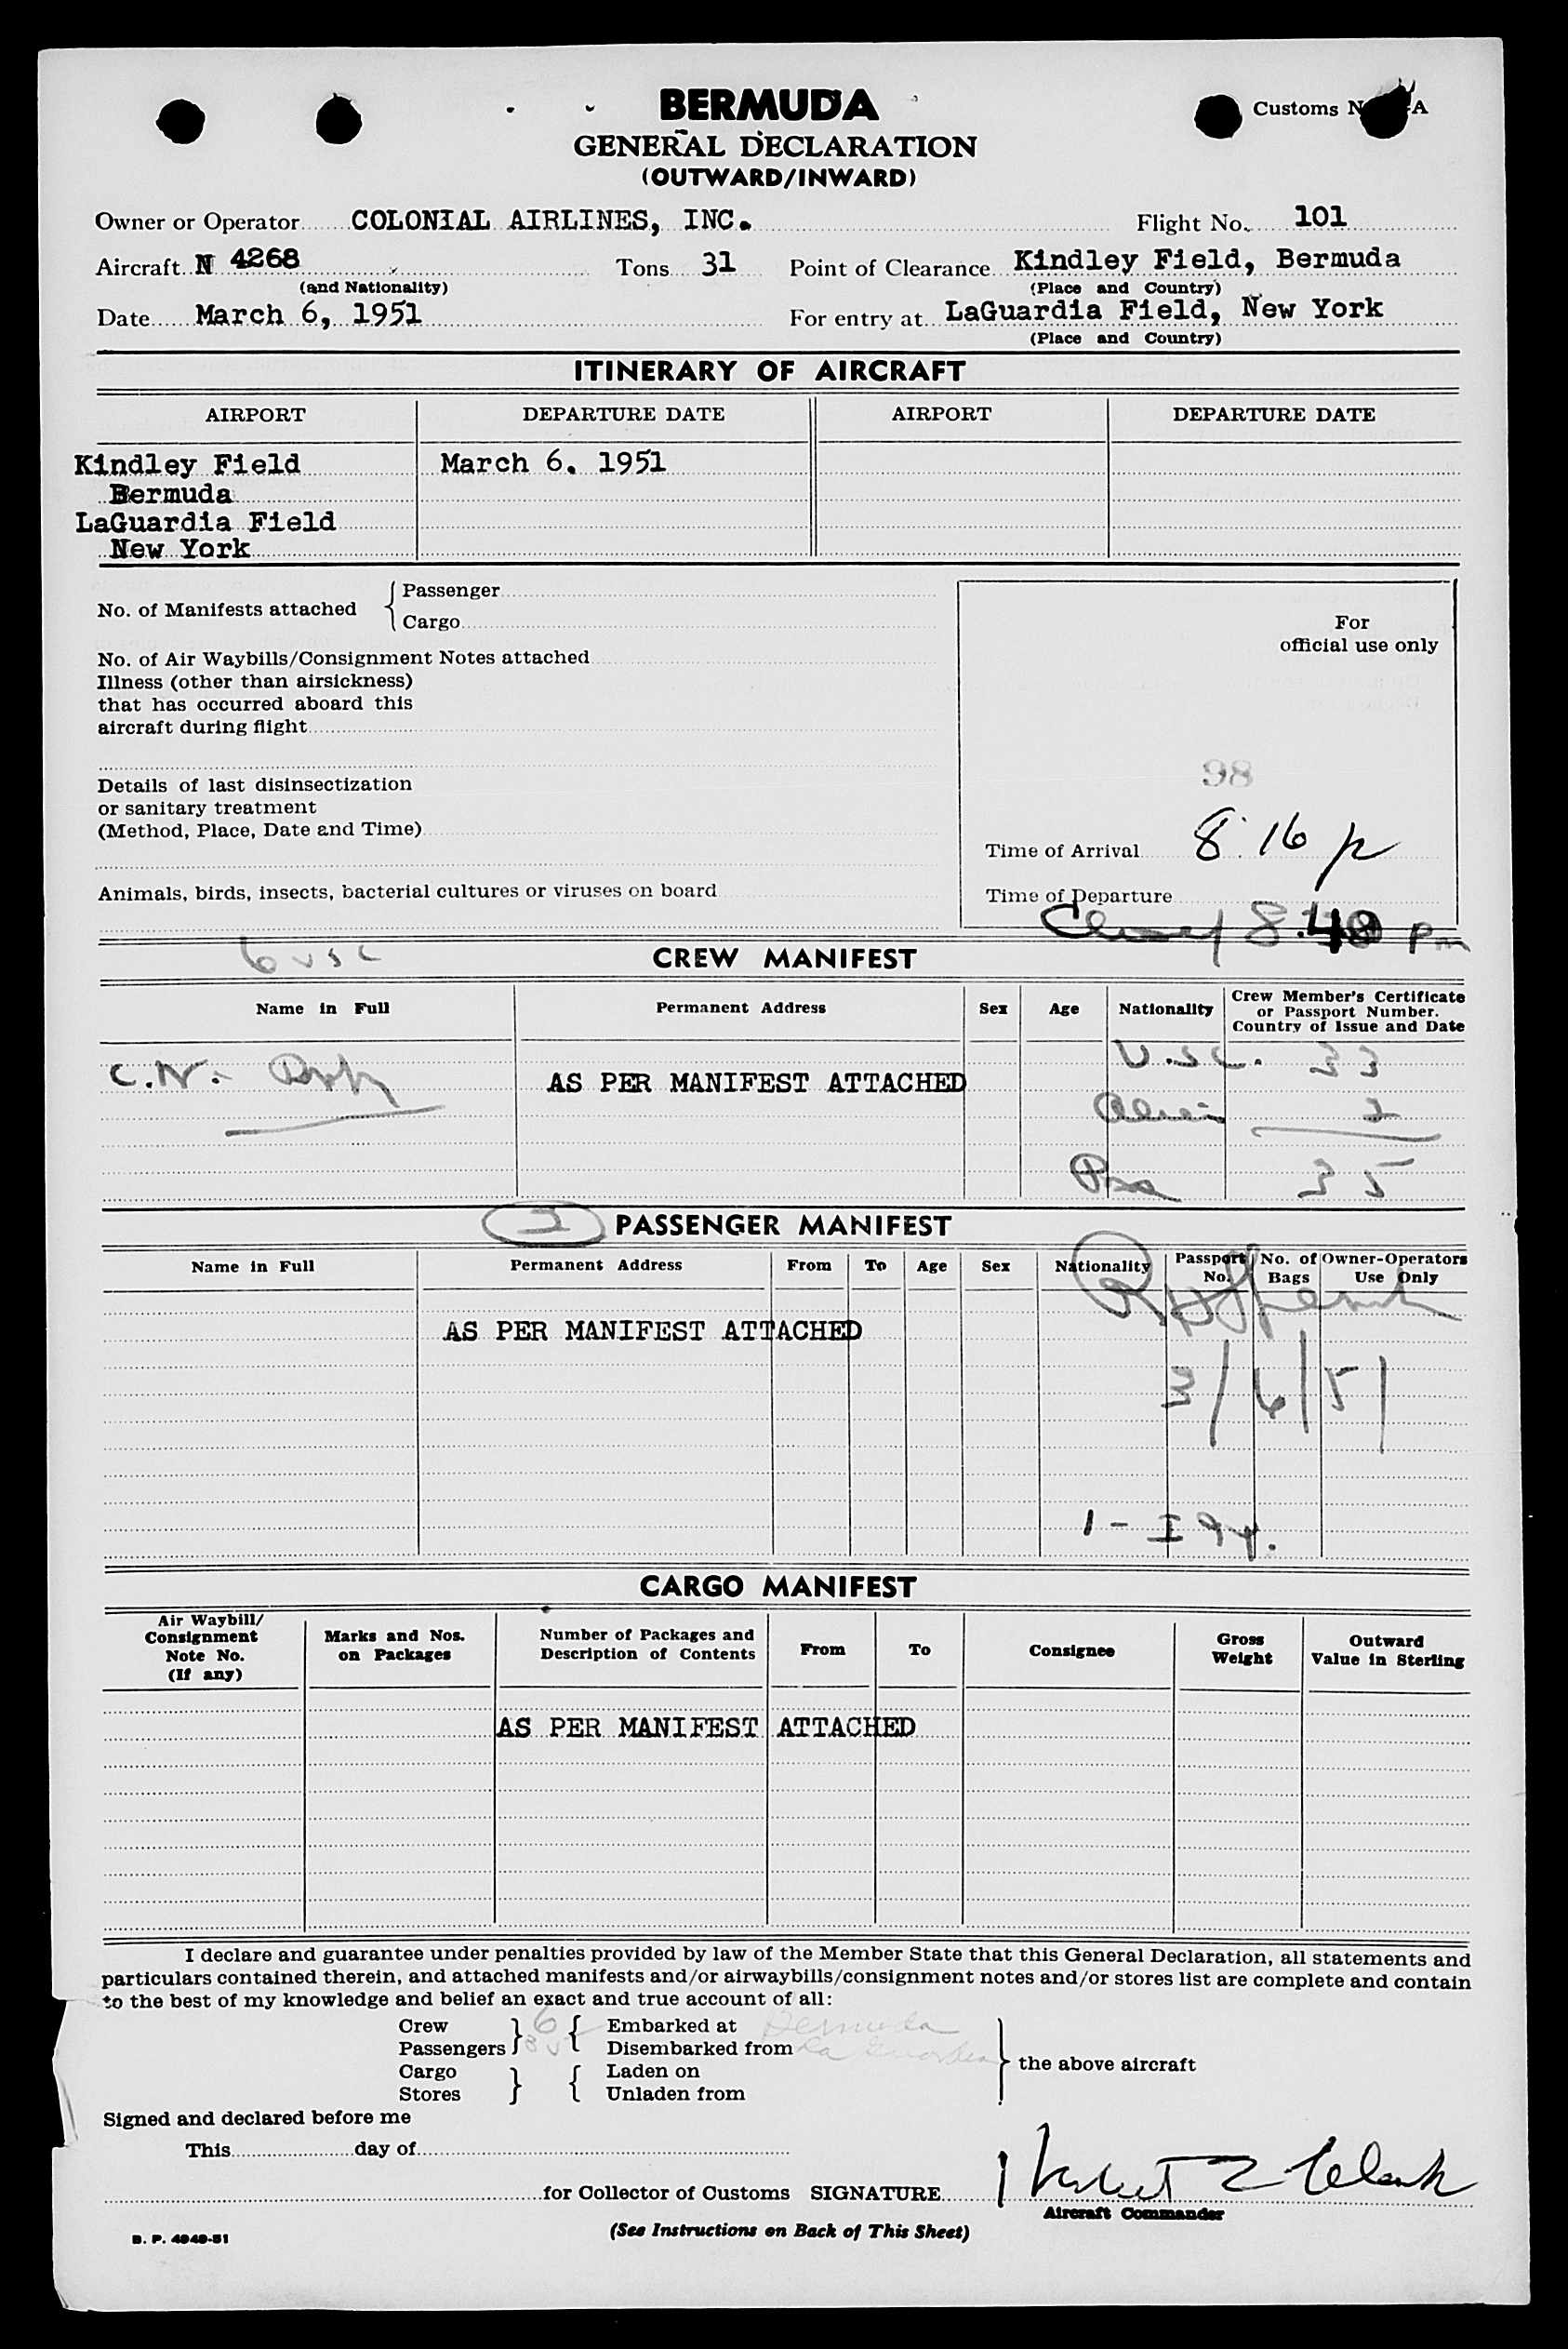 BERMUDA
Customs N A
GENERAL DECLARATION
(OUTWARD/INWARD)
Owner or Operator COLONIAL AIRLINES, INC. Flight No. 101
Aircraft N 4268 Tons 31 Point of Clearance Kindley Field, Bermuda
(and Nationality) (Place and Country)
Date March 6, 1951 For entry at LaGuardia Field, New York
(Place and Country)
ITINERARY OF AIRCRAFT
AIRPORT DEPARTURE DATE AIRPORT DEPARTURE DATE
Kindley Field March 6, 1951
Bermuda
LaGuardia Field
New York
No. of Manifests attached { Passenger
Cargo
For
official use only
No. of Air Waybills/Consignment Notes attached
Illness (other than airsickness)
that has occurred aboard this
aircraft during flight
Details of last disinsectization
or sanitary treatment
(Method, Place, Date and Time)
98
Time of Arrival 8:16 p
Animals, birds, insects, bacterial cultures or viruses on board
Time of Departure
8:40 pm
6 USC
CREW MANIFEST
Name in Full Permanent Address Sex Age Nationality Crew Member's Certificate
or Passport Number.
Country of Issue and Date
U.S.C. 33
C.N.
AS PER MANIFEST ATTACHED
Alien 2
Pax 35
PASSENGER MANIFEST
Name in Full Permanent Address From To Age Sex Nationality Passport No. No. of Bags Owner-Operators Use Only
AS PER MANIFEST ATTACHED
3/6/51
1 -
CARGO MANIFEST
Air Waybill/ Consignment Note No. (If any) Marks and Nos. on Packages Number of Packages and Description of Contents From To Consignee Gross Weight Outward Value in Sterling
AS PER MANIFEST ATTACHED
I declare and guarantee under penalties provided by law of the Member State that this General Declaration, all statements and
particulars contained therein, and attached manifests and/or airwaybills/consignment notes and/or stores list are complete and contain
to the best of my knowledge and belief an exact and true account of all:
Crew } 6 { Embarked at Bermuda
Passengers Disembarked from La Guardia
the above aircraft
Cargo } { Laden on
Stores Unladen from
Signed and declared before me
This day of
for Collector of Customs SIGNATURE
Aircraft Commander
(See Instructions on Back of This Sheet)
B. P. 4949-51